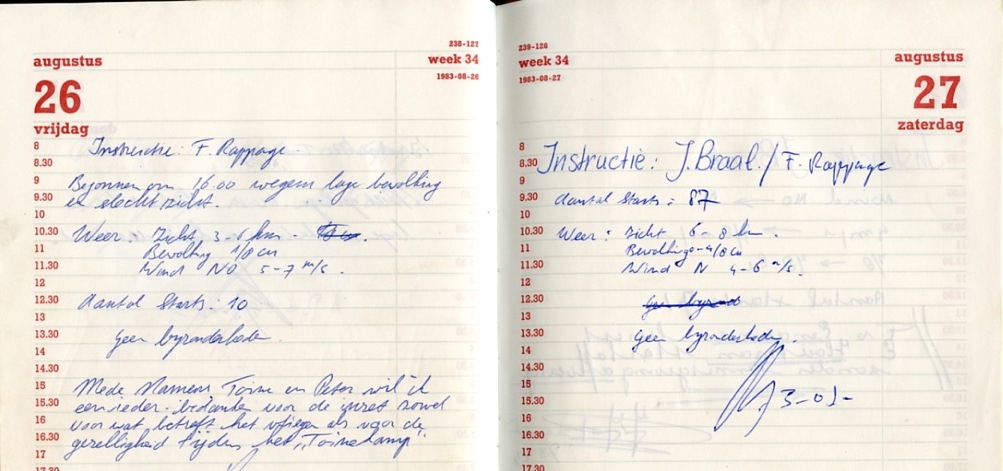 238-127
augustus
week 34
1983-08-26
26
vrijdag
8
8.30
9
9.30
10
10.30
11
11.30
12
12.30
13
13.30
14
14.30
15
15.30
16
16.30
17
17.30
Instructie: F. Rappage.
Begonnen om 16.00 wegens lage bewolking
en slecht zicht.
Weer: Zicht 3-6 km -
Bewolking 1/8 cu
Wind NO 5-7 m/s.
Aantal Starts: 10
geen byzonderheden.
Mede Namens Toine en Peter wil ik
een ieder bedanken voor de inzet zowel
voor wat betreft het vliegen als voor de
gezelligheid tijdens het "Toinekamp"
239-126
week 34
1983-08-27
augustus
27
zaterdag
8
8.30
9
9.30
10
10.30
11
11.30
12
12.30
13
13.30
14
14.30
15
15.30
16
16.30
17
17.30
Instructie: J. Braal. / F. Rappage
Aantal Starts: 87
Weer: zicht 6-8 km.
Bewolking 0-4/8 cu
Wind N 4-6 m/s.
geen byzonderheden.